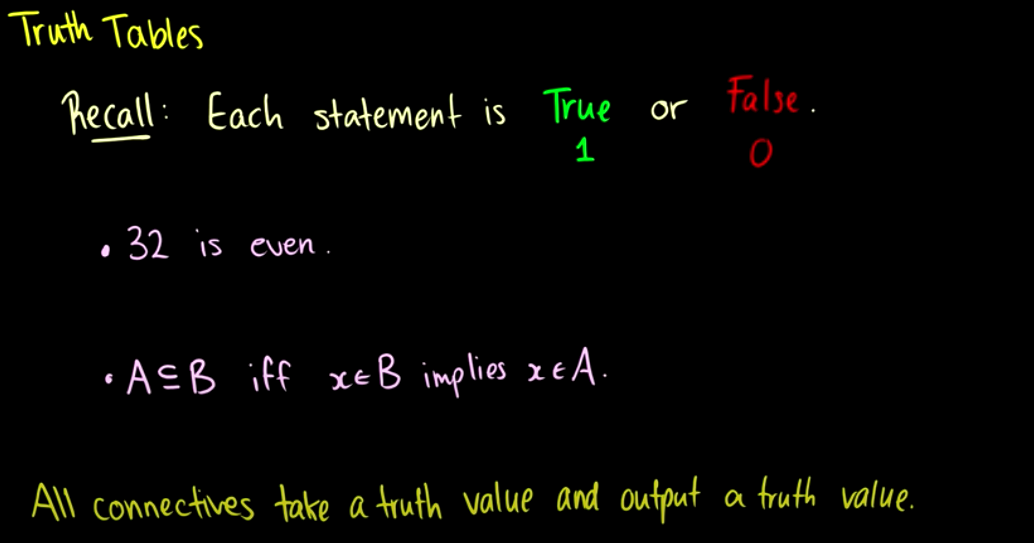 Truth Tables
Recall: Each statement is True or False.
1 0
• 32 is even.
• A⊆B iff x∈B implies x∈A.
All connectives take a truth value and output a truth value.